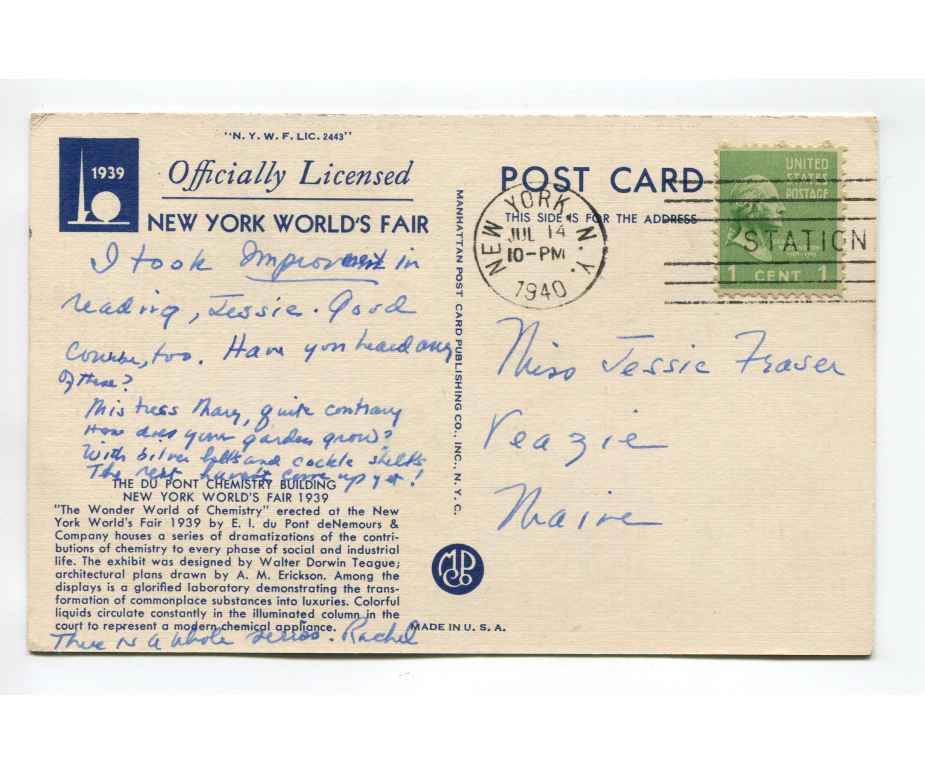 "N.Y.W.F. LIC. 2443"
1939
Officially Licensed
NEW YORK WORLD'S FAIR
I took Improvement in
reading, Jessie. Good
course, too. Have you heard any
of these?
Mistress Mary, quite contrary
How does your garden grow?
With silver bells and cockle shells
The rest haven't come up yet!
THE DU PONT CHEMISTRY BUILDING
NEW YORK WORLD'S FAIR 1939
"The Wonder World of Chemistry" erected at the New
York World's Fair 1939 by E. I. du Pont deNemours &
Company houses a series of dramatizations of the contri-
butions of chemistry to every phase of social and industrial
life. The exhibit was designed by Walter Dorwin Teague;
architectural plans drawn by A. M. Erickson. Among the
displays is a glorified laboratory demonstrating the trans-
formation of commonplace substances into luxuries. Colorful
liquids circulate constantly in the illuminated column in the
court to represent a modern chemical appliance.
There is a whole series. Rachel
MANHATTAN POST CARD PUBLISHING CO., INC., N.Y.C.
MADE IN U.S.A.
POST CARD
THIS SIDE IS FOR THE ADDRESS
NEW YORK, N.Y.
JUL 14
10-PM
1940
STATION
UNITED
STATES
POSTAGE
1 CENT 1
Miss Jessie Fraser
Veazie
Maine